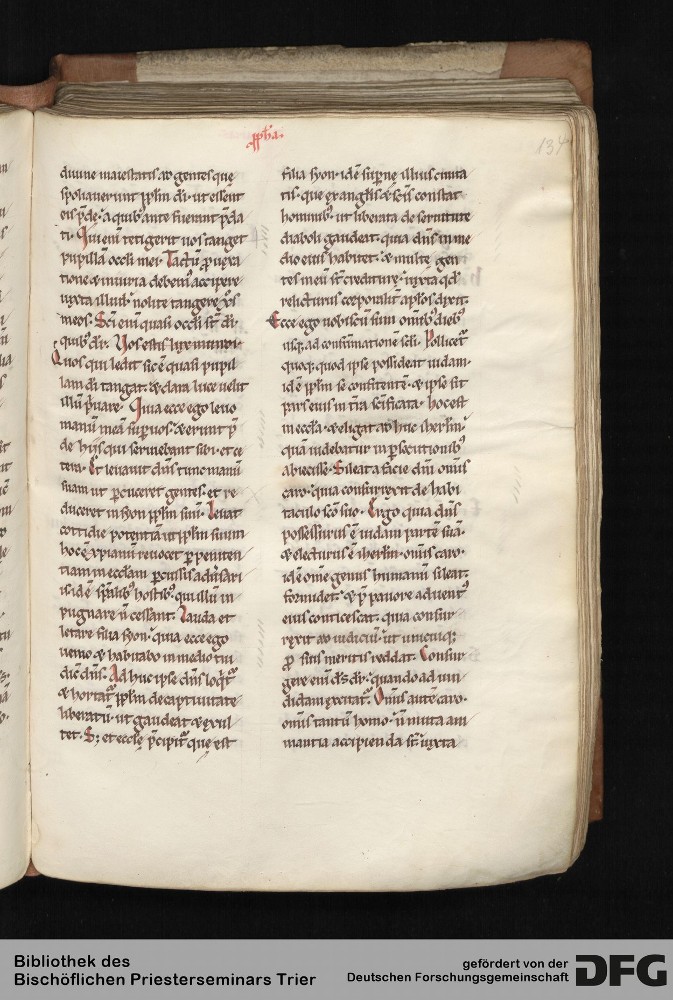 .ppħa.
134
diuine maiestatis ad gentes quę
spoliauerunt pplm di. ut essent
eis p̄dę. a quib; ante fuerunt p̄da
ti. Qui eni tetigerit uos tanget
pupillā oculi mei. Tactū ꝓ uexa
tione & iniuria debem; accipere
iuxta illud. nolite tangere xp̄os
meos. Sci eni quasi oculi st̄ di.
quib; dr. Vos estis lux mundi.
Quos qui ledit sic ē quasi pupil
lam di tangat. & clara luce uelit
illū p̄uare. Quia ecce ego leuo
manū meā sup uos. & erunt p̄
de hiis qui seruiebant sibi. et ce
tera. Et leuauit dn̄s tunc manū
suam ut percuteret gentes. et re
duceret in syon pplm suū. Leuat
cottidie potentiā ut pplm suum
hoc ē xp̄ianū reuocet per peniten
tiam in ecclam percussis aduersari
is. id ē sp̄alib; hostib; qui illū in
pugnare n̄ cessant. Lauda et
letare filia syon. quia ecce ego
uenio & habitabo in medio tui
dicit dn̄s. Ad huc ipse dn̄s loq̄t
& hortat pplm de captiuitate
liberatū. ut gaudeat & exul
tet. S; et ecclę p̄cipit quę est
filia syon. id ē supnę illius ciuita
tis. que ex angl̄is & scis constat
hominib;. ut liberata de seruitute
diaboli gaudeat. quia dn̄s in me
dio eius habitet. & multe gen
tes in eū st̄ crediturę. iuxta qd
relicturus corporaliter ap̄los dixit.
Ecce ego uobiscū sum omib; dieb;
usq; ad consūmationē scli. Pollicet
quoq; quod ipse possideat iudam.
id ē pplm se confitentē. & ipse sit
pars eius in tra scificata. hoc est
in eccla. & eligat ad huc iherlm.
quā uidebatur in p̄secutionib;
abiecisse. Sileat a facie dn̄i omis
caro. quia consurrexit de habi
taculo sco suo. Ergo quia dn̄s
possessurus ē iudam partē suā.
& electurus ē iherlm. omis caro.
id ē ome genus humanū sileat.
formidet. & p̄ pauore aduent;
eius conticescat. quia consur
rexit ad iudiciū. ut unicuiq;
ꝓ suis meritis reddat. Consur
gere eni ds dr. quando ad iudi
candum excitat. Omis autē caro.
omis tantū homo. n̄ muta ani
mantia accipienda st̄ iuxta
Bibliothek des
Bischöflichen Priesterseminars Trier
gefördert von der
Deutschen Forschungsgemeinschaft
DFG